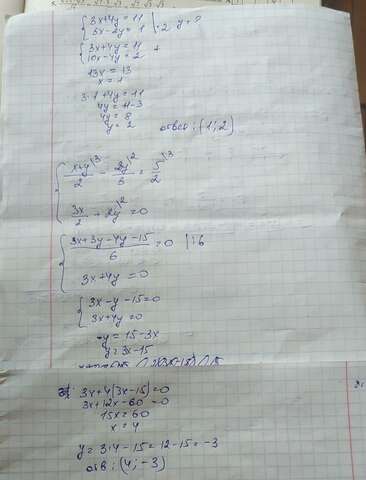 {3x+4y=11
{5x-2y=1 |·2 y=?
{3x+4y=11
{10x-4y=2 +
13x=13
x=1
3·1+4y=11
4y=11-3
4y=8
y=2
ответ: (1; 2)
{(x+y)/2 \3 - 2y/3 \2 = 5/2 \3
{3x/2 + 2y \2 = 0
{(3x+3y-4y-15)/6 = 0 |·6
{3x+4y=0
{3x-y-15=0
{3x+4y=0
-y=15-3x
y=3x-15
3x+4(3x-15)=0
3x+12x-60=0
15x=60
x=4
y=3·4-15=12-15=-3
отв: (4; -3)